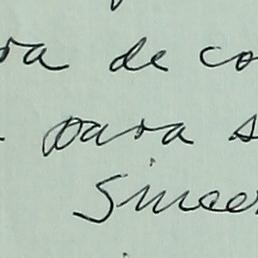 ra de co
para s
Sincer